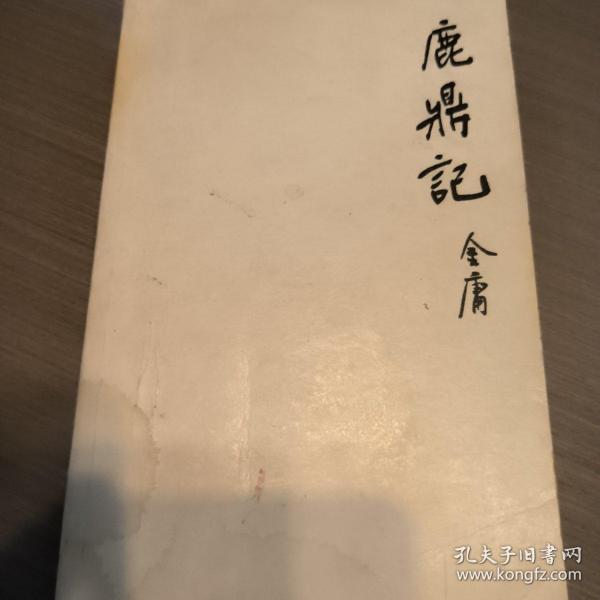 鹿鼎記
金庸
孔夫子旧書网
www.kongfz.com